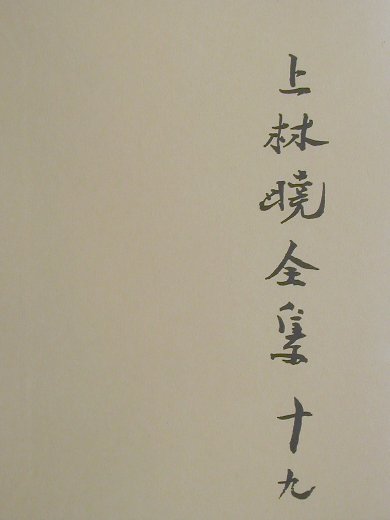 上林暁全集十九